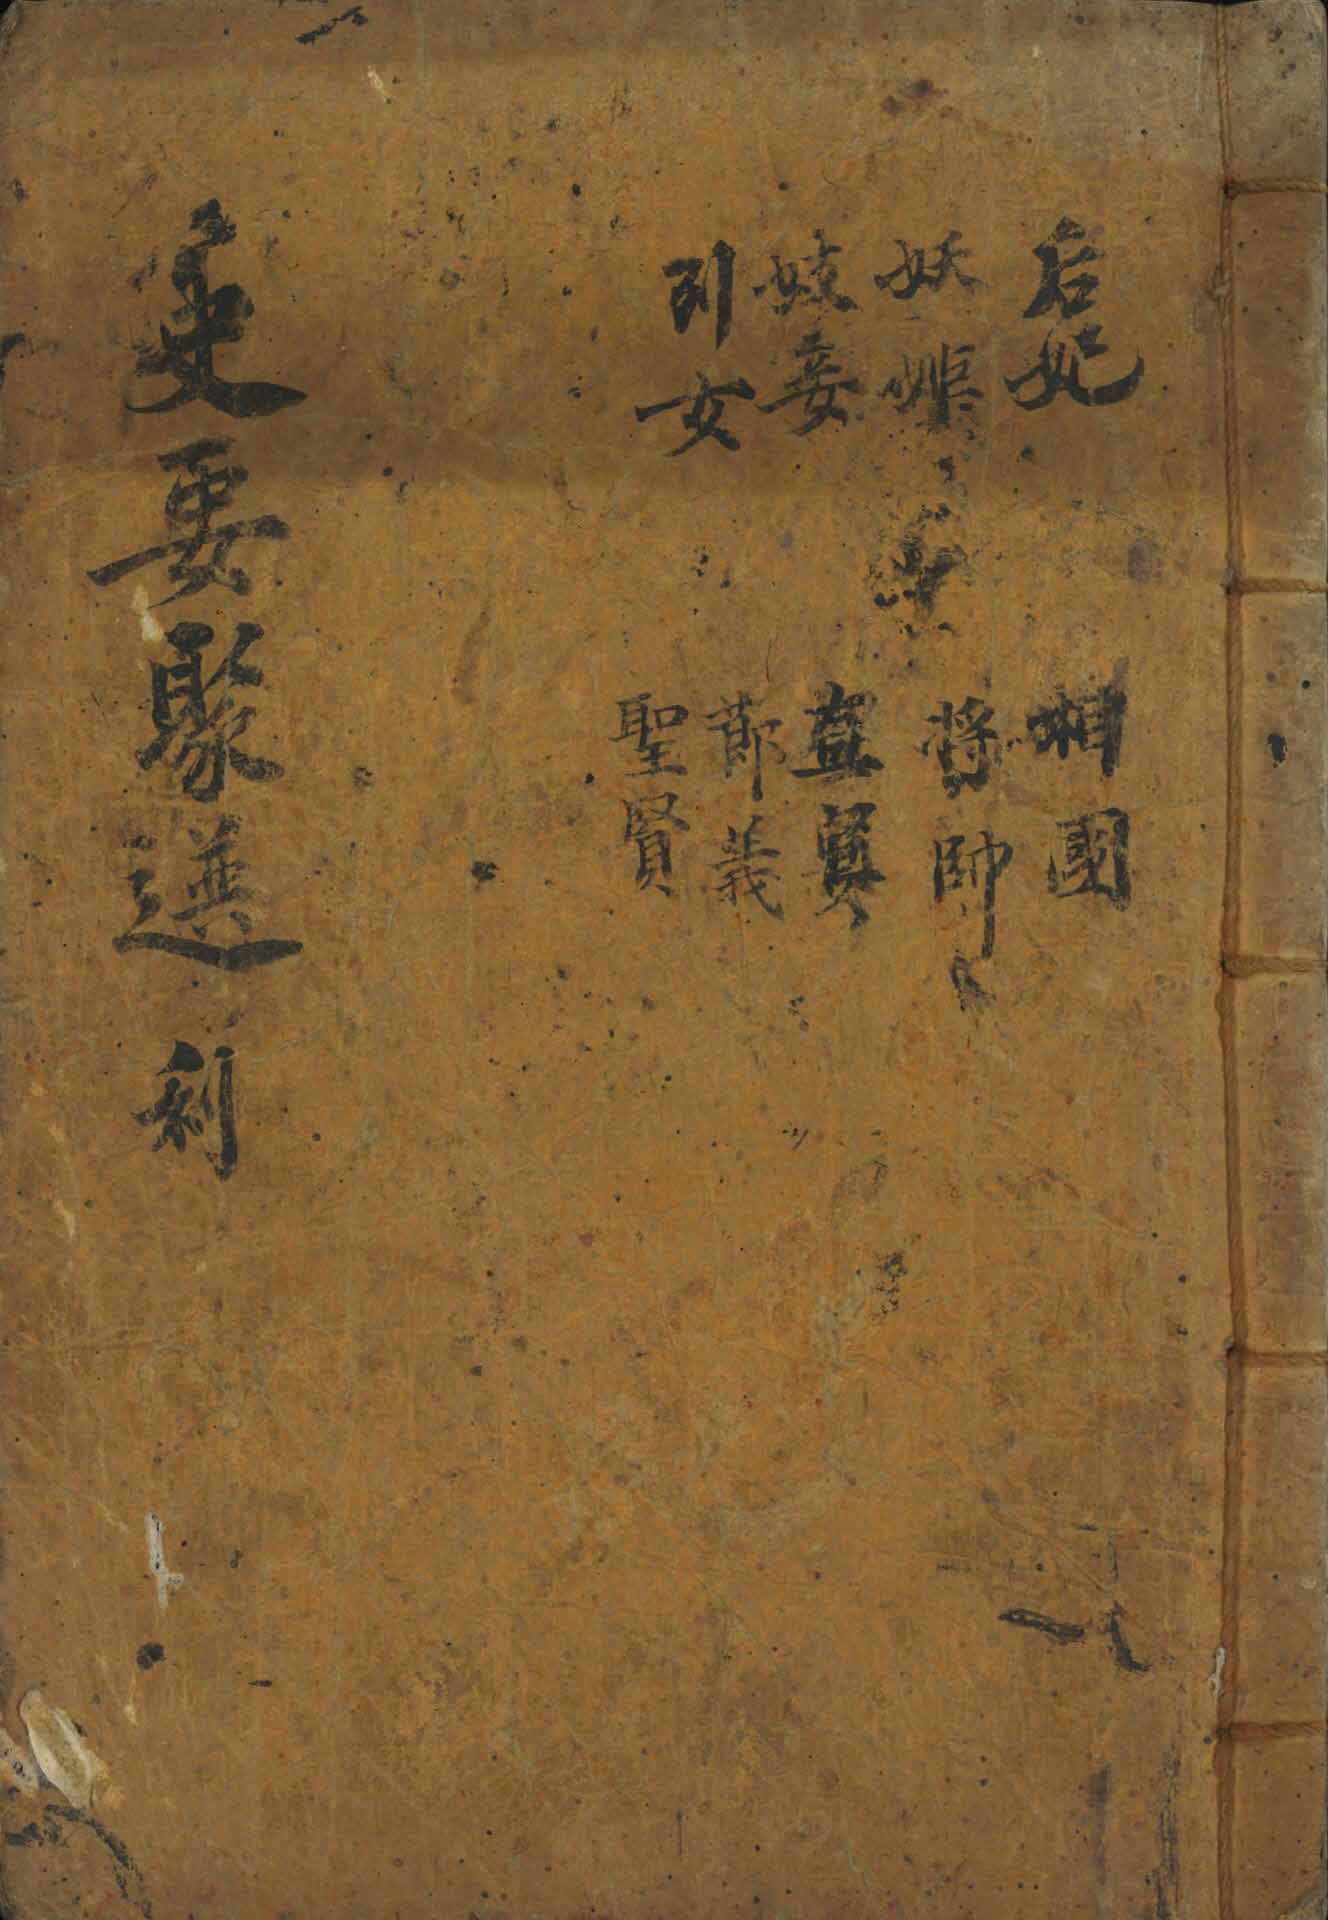 后妃
妖姬
妓妾
列女
相國
將帥
節義
聖賢
史要聚選 利